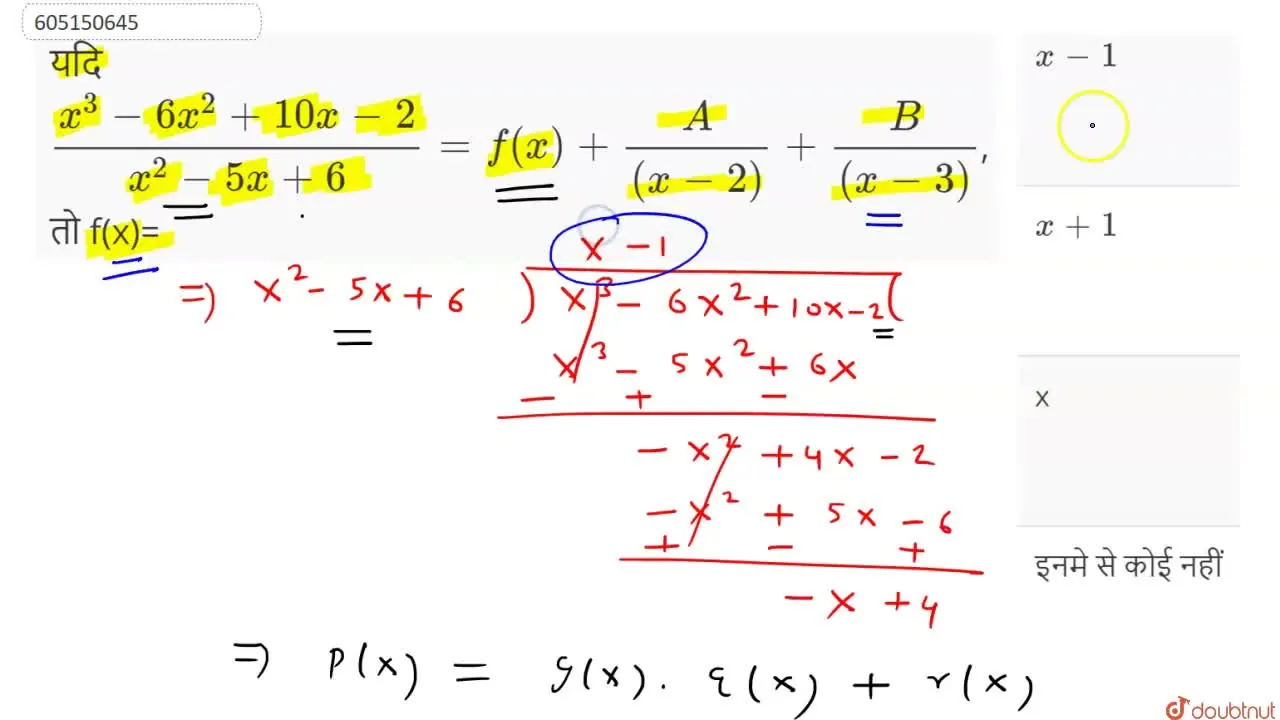 605150645
यदि
x³ − 6x² + 10x − 2 / x² − 5x + 6 = f(x) + A / (x − 2) + B / (x − 3),
तो f(x)=
x − 1
x + 1
x
इनमे से कोई नहीं
x − 1
=) x² − 5x + 6 ) x³ − 6x² + 10x − 2 (
x³ − 5x² + 6x
− + −
− x² + 4x − 2
− x² + 5x − 6
+ − +
− x + 4
=) P(x) = g(x). q(x) + r(x)
doubtnut